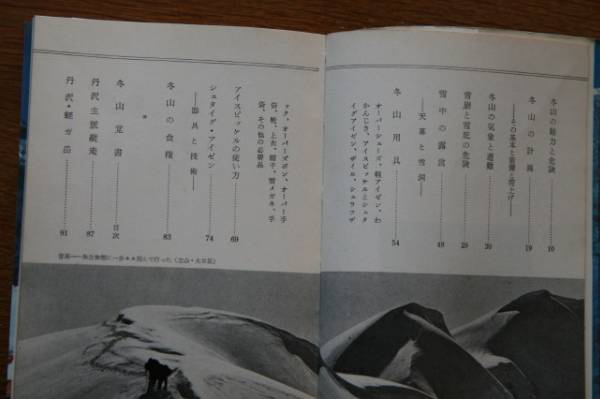 冬山の魅力と危険 10
冬山の計画 19
―その基本と装備と荷上げ―
冬山の気象と遭難 30
雪崩と雪庇の危険
雪中の露営 49
―天幕と雪洞―
冬山用具 54
オーバーシューズ・軽アイゼン、わ
かんじき、アイスピッケルとシュタ
イグアイゼン、ザイル、シュラフザ
ック、オーバーズボン、オーバー手
袋、靴、上衣、帽子、雪メガネ、手
袋、その他の必需品
アイスピッケルの使い方 69
シュタイグ・アイゼン 74
―器具と技術―
冬山の食糧 83
冬山覚書 目次
丹沢主脈縦走 87
丹沢・蛭ガ岳 91